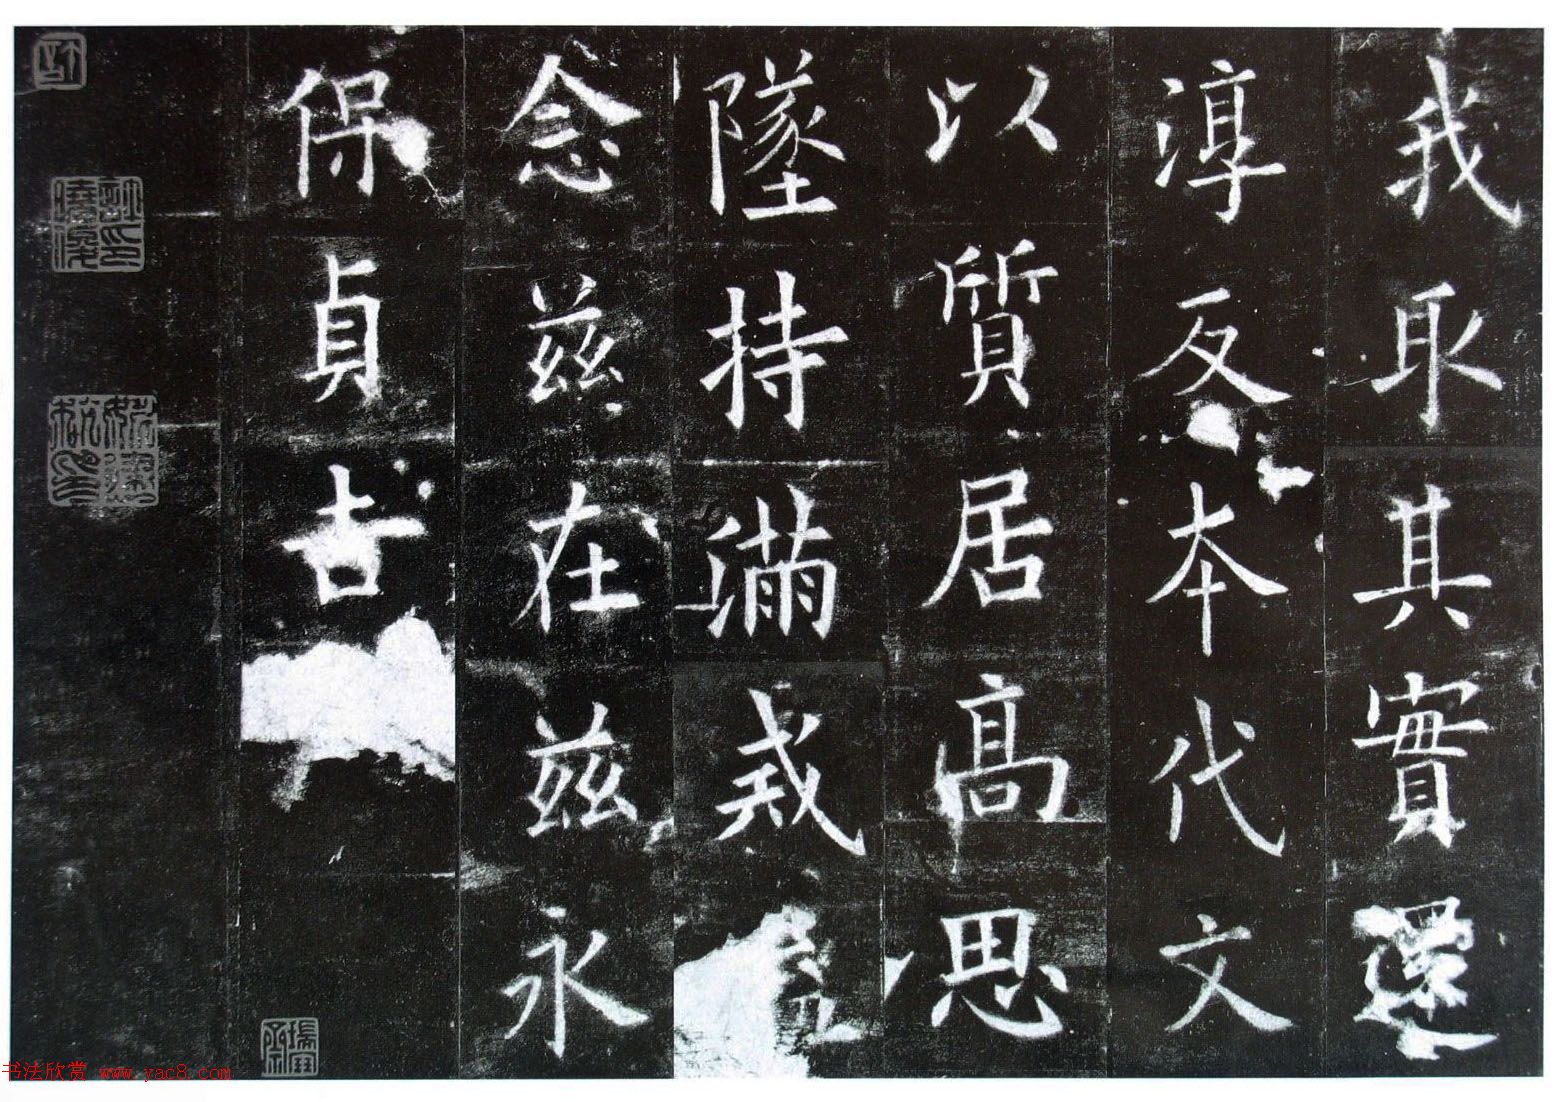 我取其實還
淳反本代文
以質居高思
墜持滿戒溢
念茲在茲永
保貞吉
书法欣赏 www.yac8.com